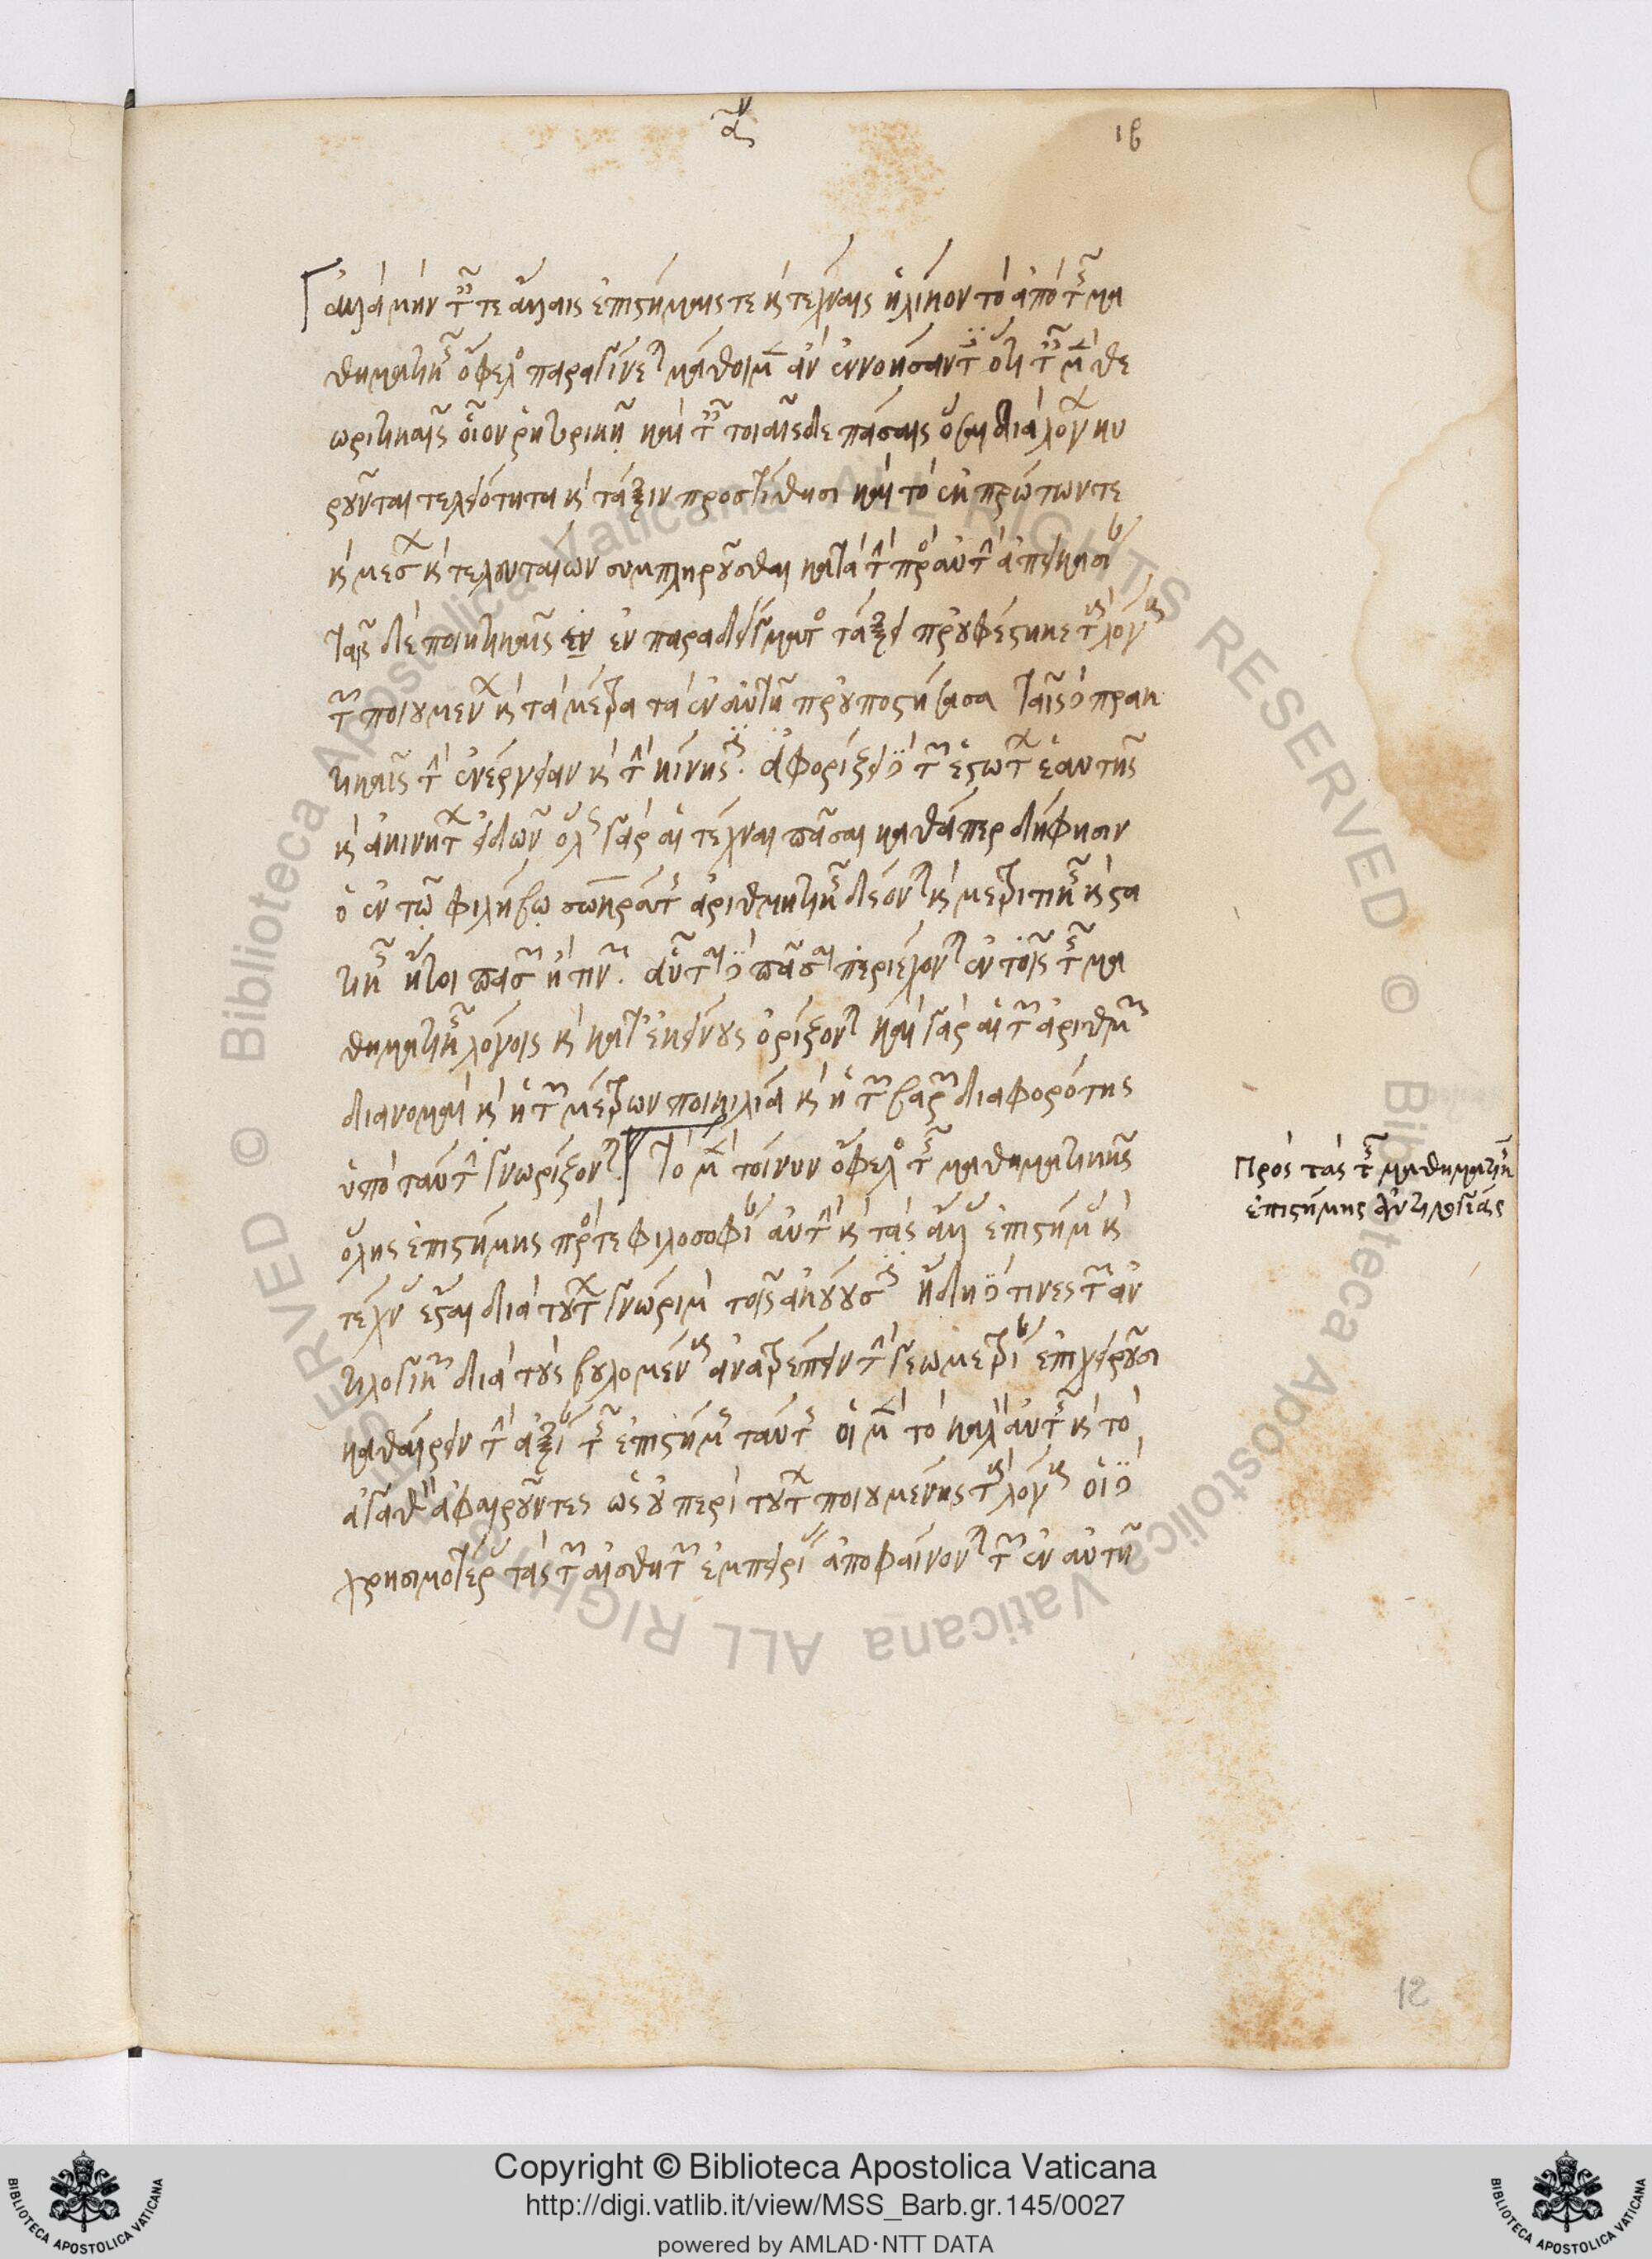 ιβ
ἀλλὰ μὴν ταῖς τε ἄλλαις ἐπιστήμαις τε καὶ τέχναις ἡλίκον τὸ ἀπὸ τῆς μα
θηματικῆς ὄφελος παραγίνεται μάθοιμεν ἂν ἐννοήσαντες ὅτι ταῖς μὲν θε
ωρητικαῖς οἷον ῥητορικῇ καὶ ταῖς τοιαῖσδε πάσαις ὅσαι διὰ λόγων κυ
ροῦνται τελειότητα καὶ τάξιν προστίθησι καὶ τὸ ἐκ πρώτων τε
καὶ μέσων καὶ τελευταίων συμπληροῦσθαι κατὰ τὴν πρὸς αὐτὴν ἀπεικασίαν
ταῖς δὲ ποιητικαῖς ἐν ἐν παραδείγματος τάξει προυφέστηκε τοὺς λόγους
τῶν ποιουμένων καὶ τὰ μέτρα τὰ ἐν αὐτῇ προυποστήσασα ταῖς δὲ πρακ
τικαῖς τὴν ἐνέργειαν καὶ τὴν κίνησιν. ἀφορίζει δὲ τῶν ἑστώτων ἑαυτῆς
καὶ ἀκινήτων εἰδῶν ὅλως γὰρ αἱ τέχναι πᾶσαι καθάπερ δή φησιν
ὁ ἐν τῷ φιλήβῳ σωκράτης ἀριθμητικῆς δέονται καὶ μετρητικῆς καὶ στα
τικῆς ἤτοι πασῶν ἢ τινῶν. αὗται δὲ πᾶσαι περιέχονται ἐν τοῖς τῆς μα
θηματικῆς λόγοις καὶ κατ' ἐκείνους ὁρίζονται καὶ γὰρ αἱ τῶν ἀριθμῶν
διανομαὶ καὶ ἡ τῶν μέτρων ποικιλία καὶ ἡ τῶν βαρῶν διαφορότης
ὑπὸ ταύτην γνωρίζονται. Τὸ μὲν τοίνυν ὄφελος τῆς μαθηματικῆς
ὅλης ἐπιστήμης πρός τε φιλοσοφίαν αὐτὴν καὶ τὰς ἄλλας ἐπιστήμας καὶ
τέχνας ἔσται διὰ τούτων γνώριμον τοῖς ἀκούουσιν ἤδη δὲ τινες τῶν ἀν
τιλογικῶν διὰ τοὺς βουλομένους ἀνατρέπειν τὴν γεωμετρίαν ἐπιχειροῦσι
καθαιρεῖν τὴν ἀξίαν τῆς ἐπιστήμης ταύτης οἱ μὲν τὸ καλὸν αὐτῆς καὶ τὸ
ἀγαθὸν ἀφαιροῦντες ὡς οὐ περὶ τούτων ποιουμένης τοὺς λόγους οἱ δὲ
χρησιμοτέρας τὰς τῶν αἰσθητῶν ἐμπειρίας ἀποφαίνονται τῶν ἐν αὐτῇ
Πρὸς τὰς τῆς μαθηματικῆς
ἐπιστήμης ἀντιλογίας
12
Copyright © Biblioteca Apostolica Vaticana
http://digi.vatlib.it/view/MSS_Barb.gr.145/0027
powered by AMLAD·NTT DATA